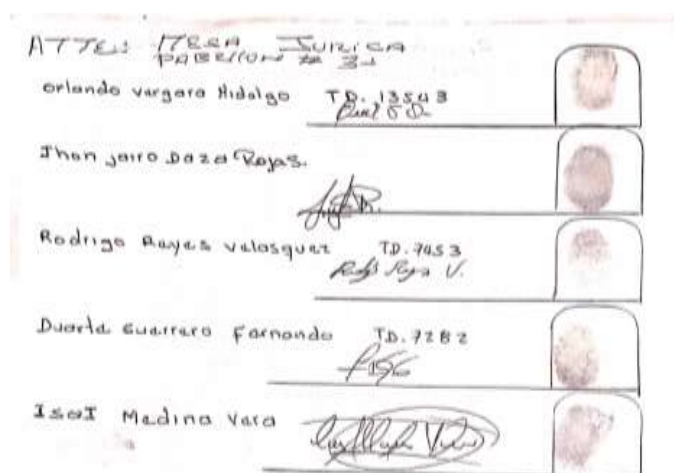 ATTE: MESA JURICA
PABELLON # 31
orlando vargara Hidalgo TD. 13543
Jhon jairo Daza Rojas.
Rodrigo Reyes velasquez TD. 7453
Rodrigo Reyes V.
Duarte Guerrero Fernando TD. 7282
Isai Medina Vera